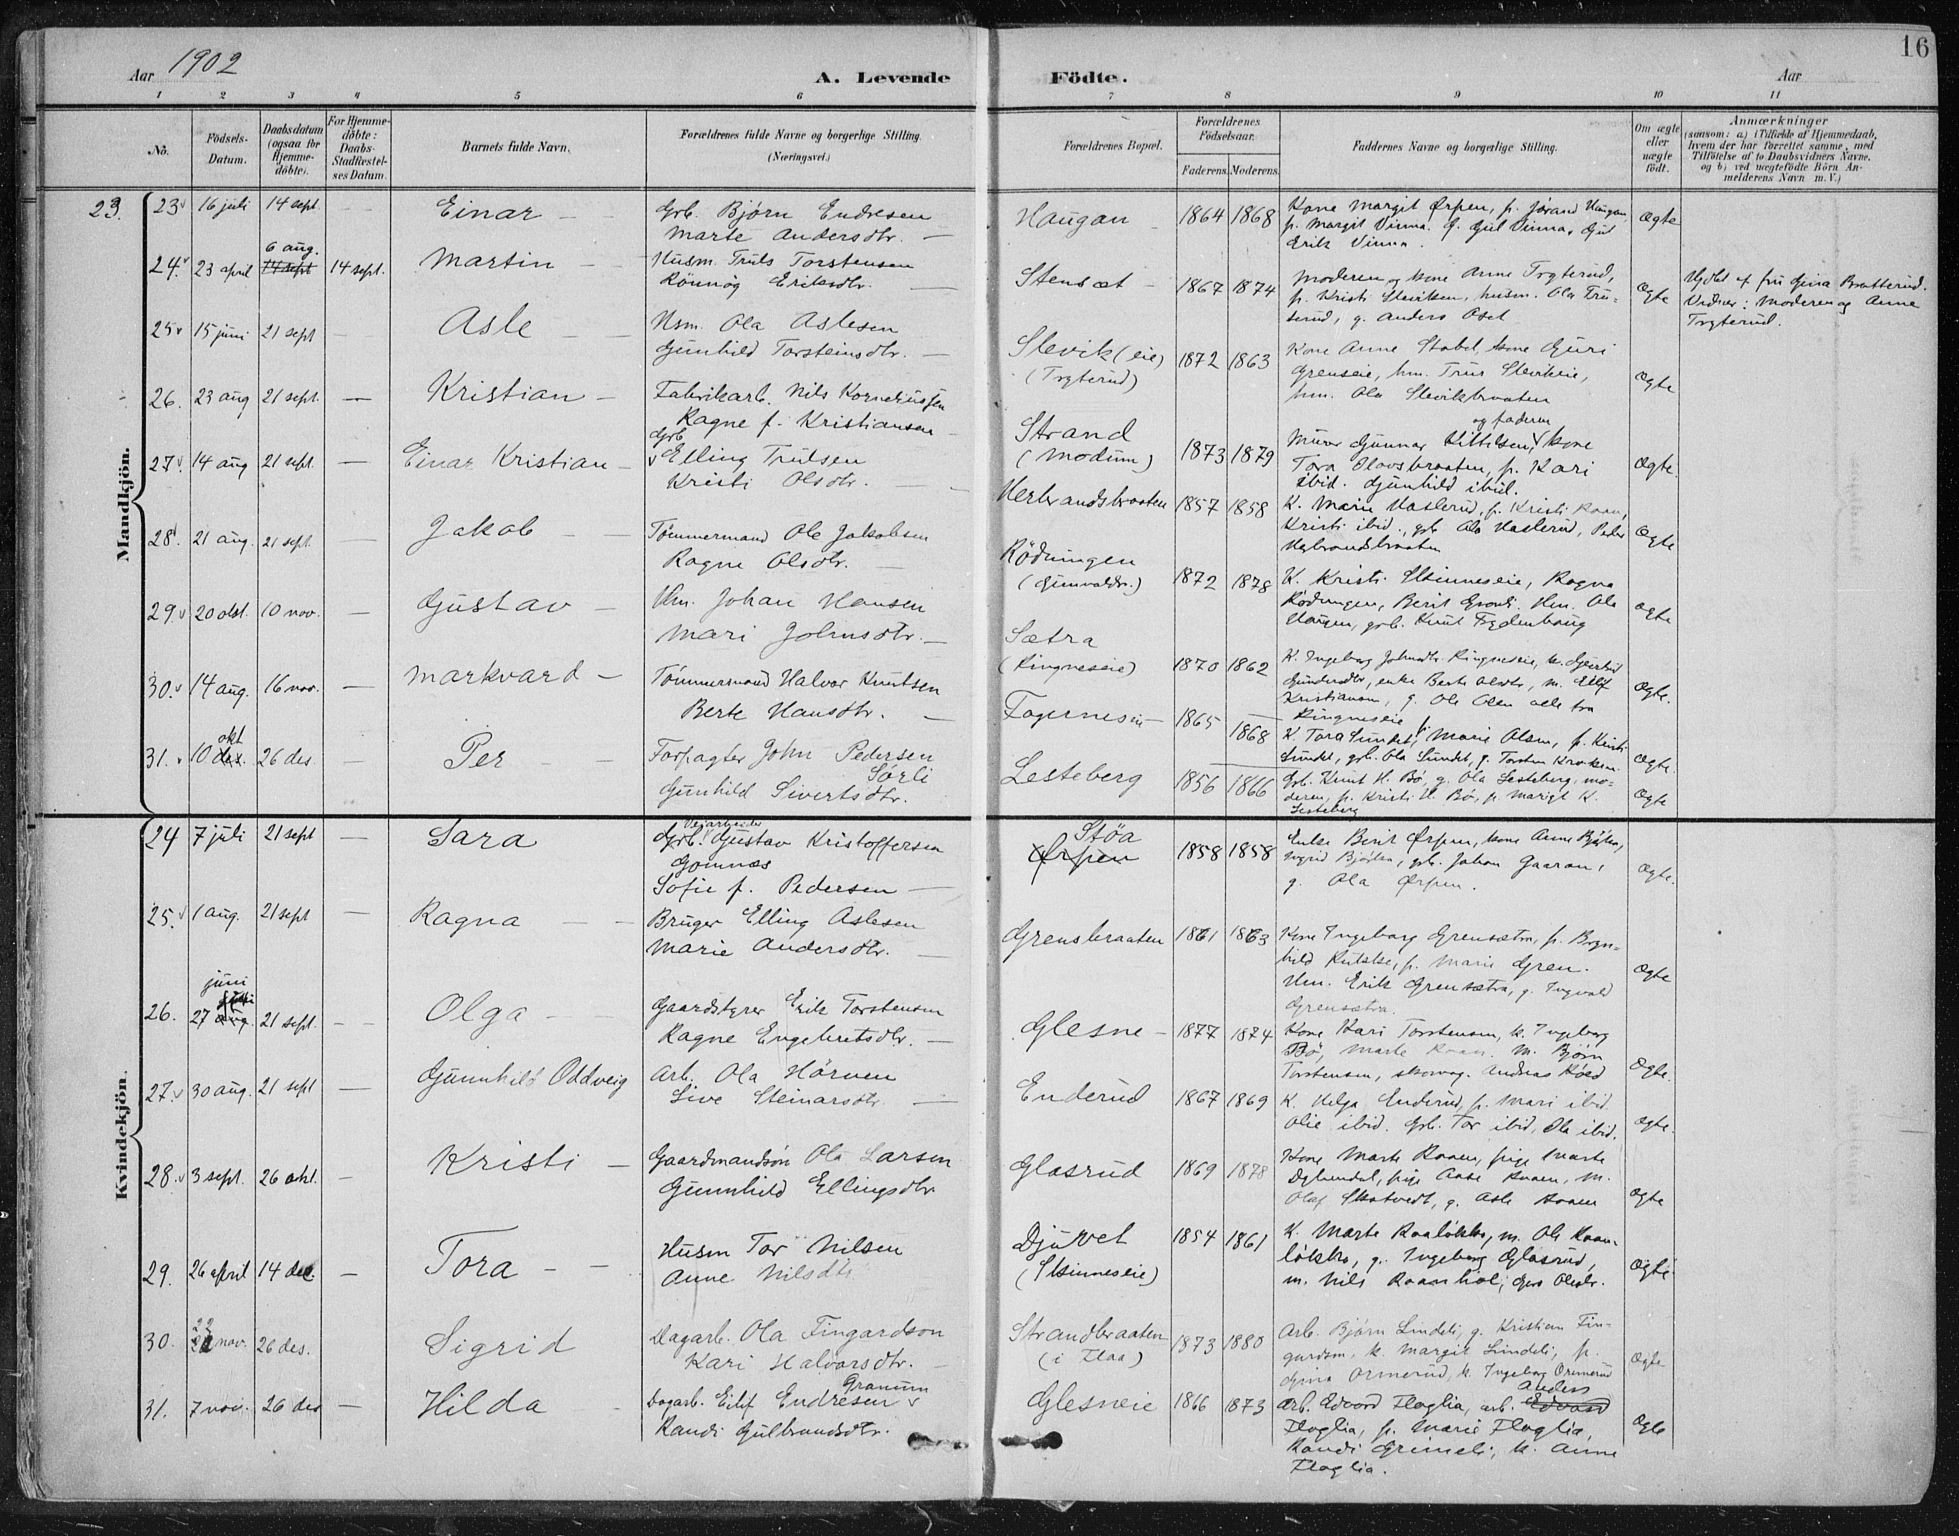 Aar 1902
A. Levende Födte.
Aar
16
1 2 3 4 5 6 7 8 9 10 11
No.
Födsels-Datum.
Daabsdatum (ogsaa for Hjemme-döbte).
For Hjemme-döbte: Daabs-Stadfæstel-ses Datum.
Barnets fulde Navn.
Forældrenes fulde Navne og borgerlige Stilling. (Næringsvei.)
Forældrenes Bopæl.
Forældrenes Födselsaar.
Faderens. Moderens.
Faddernes Navne og borgerlige Stilling.
Om ægte eller uægte födt.
Anmærkninger
(saasom: a) i Tilfælde af Hjemmedaab, hvem der har forrettet samme, med Tilföielse af to Daabsvidners Navne, og b) ved uægtefödte Börn An-melderens Navn m. V.)
Mandkjön.
23. 23 16 juli 14 sept. — Einar — Grb. Bjørn Endresen
Marte Andersdtr. — Haugan 1864 1868 Kone Margit Ørpen, p. Jørand Haugan,
p. Margit Vinna. G. Gul Vinna, Gul
Erik Vinna. Ægte
24. 23 april 6 aug. 14 sept 14 sept. Martin — Husm. Truls Torstensen
Rönnög Eriksdtr. — Stensæt — 1867 1874 Moderen og kone Anne Trgterud,
p. Kristi Slevikeie, husm. Ola Tru-
serud, g. Anders Oset Ægte Hjdbt af fru Gina Bratterud.
Vidner: Moderen og Anne
Trgterud.
25 15 juni 21 sept — Asle — Hsm. Ola Aslesen
Gunhild Torsteinsdtr. — Slevik (eie)
(Trgterud) 1872 1863 Kone Anne Stabel, kone Guri
Grenseie, hm. Trur Slevikeie,
hm. Ola Slevikbraaten Ægte
26. 23 aug 21 sept. — Kristian — Fabrikarb. Nils Korneliussen
Ragne f. Kristiansen — Strand
(Modum) 1873 1879 Murer Gunnar Kittelsen, og faderen kone
Tora Olavsbraaten, p. Kari
ibid. Gunhild ibid. Ægte
27. 14 aug 21 sept. — Einar Kristian — Grb. Elling Trulsen
Kristi Olsdtr. — Herbrandsbraaten 1857 1858 K. Marie Haslerud, p. Kristi Raaen,
Kristi ibid., grb. Ola Haslerud, Peder
Herbrandsbraaten Ægte
28. 21 aug. 21 sept. — Jakob — Tömmermand Ole Jakobsen
Ragne Olsdtr. — Rödningen
(Gunvaldr.) 1872 1878 K. Kristi Skinneseie, Ragna
Rödningen, Berit Grønli. Hm. Ola
Haugen, grb. Knut Frydenhaug Ægte
29. 20 okt. 10 nov. — Gustav — Hm. Johan Hansen
Mari Johnsdtr. — Sætra
(Ringneseie) 1870 1862 K. Ingeborg Johnsdtr. Ringneseie,
enke Berte Olsdtr, m. Ellif
Kristiansen, g. Ole Olsen alle fra
Ringneseie Ægte.
30. 14 aug. 16 nov. — Markvard — Tömmermand Halvor Knutsen
Berte Hansdtr. — Fagernes 1865 1868 K. Tora Sundet, Marie Olsen, p. Kristi
Sundet, grb. Ola Sundet, g. Torsten Ægte.
31. 10 okt des. 26 des — Per — Forpagter John Pedersen
Sørli
Gunhild Sivertsdtr. Lesteberg 1856 1866 Grb. Knut H. Bø, g. Ola Lesteberg, mo-
deren, p. Kristi H. Bø, p. Marigt K.
Lesteberg Ægte
Kvindekjön.
24 7 juli 21 sept — Sara Grb. Vejarbeider Gustav Kristoffersen
Gomnæs
Sofie f. Pedersen — Støa
Ørpen 1858 1858 Enke Berit Ørpen, kone Anne Bjøkn,
Sigrid Bjøkn, grb. Johan Gaaran,
g. Ola Ørpen. Ægte.
25. 1 aug. 21 sept — Ragna — Bruger Elling Aslesen
Marie Andersdtr. — Grensbraaten 1861 1863 Kone Ingeborg Grensætra, p. Bryn-
hild Rukke, p. Marie Gren.
Hm. Erik Grensætra, g. Ingvald
Grensætra. Ægte
26. 27 juni aug. 21 sept. — Olga — Gaardstyrer Erik Torstensen
Ragne Engebretsdtr. — Glesne — 1877 1874 Kone Kari Torstensen, k. Ingeborg
Bö, Marte Raaen. M. Bjørn
Torstensen, skovvog. Andreas Röed Ægte.
27. 30 aug. 21 sept — Gunnhild Oddveig Arb. Ola Hörven
Live Steinarsdtr. — Enderud 1867 1869 K. Helga Enderud, p. Mari ibid
Olie ibid. Grb. Tor ibid, Ola ibid. Ægte.
28. 3 sept. 26 okt. — Kristi — Gaardmandsön Ola Larsen
Gunnhild Ellingsdtr Glasrud 1869 1878 Kone Marte Raaen, pige Marte
Dybendal, pige Aase Raaen, m.
Olaf Skatvedt, g. Asle Raaen Ægte
29. 26 april 14 dec. — Tora — Husm Tor Nilsen
Anne Nilsdtr Djuvet
(Skinneseie) 1854 1861 K. Marte Raaløkka, m. Ole Raaen-
løkka, g. Ingeborg Glasrud,
m. Nils Raanhol, Gro Olsdr. Ægte
30. 22 nov. 26 des. Sigrid Dagarb. Ola Fingardson
Kari Halvorsdtr. — Strandbraaten
(i Flaa) 1873 1880 Arb. Bjørn Lindeli, g. Kristian Fin-
gardson, k. Margit Lindeli, p.
Gina Ormerud, k. Ingeborg Ormerud Ægte
31. 7 nov. 26 des — Hilda — Dagarb. Eilif Endresen Granum
Randi Gulbrandsdtr. Glesneie 1866 1873 Arb. Edvard Flaglia, arb. Anders Edvard
Flaglia, p. Marie Flaglia,
Randi Grimeli, k. Anne
Flaglia. Ægte